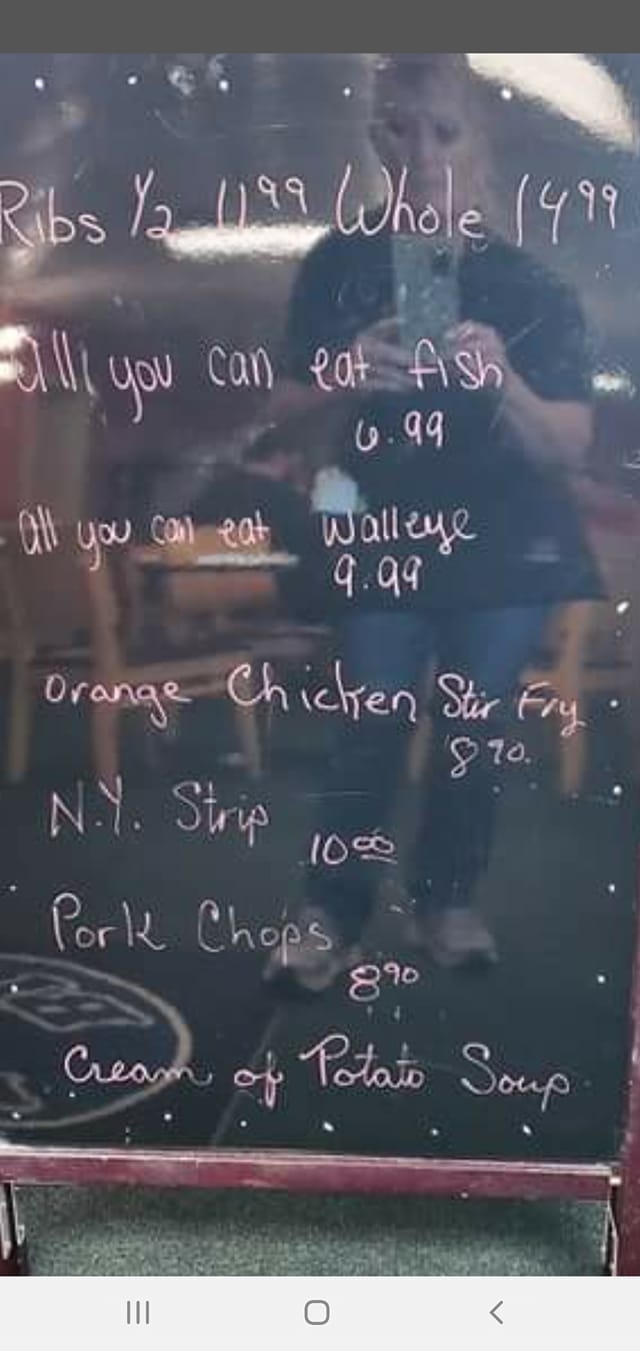 Ribs 1/2 11 99 Whole 14 99
All you can eat fish
6.99
all you can eat Walleye
9.99
Orange Chicken Stir Fry
8 90
N.Y. Strip
10 00
Pork Chops
8 90
Cream of Potato Soup